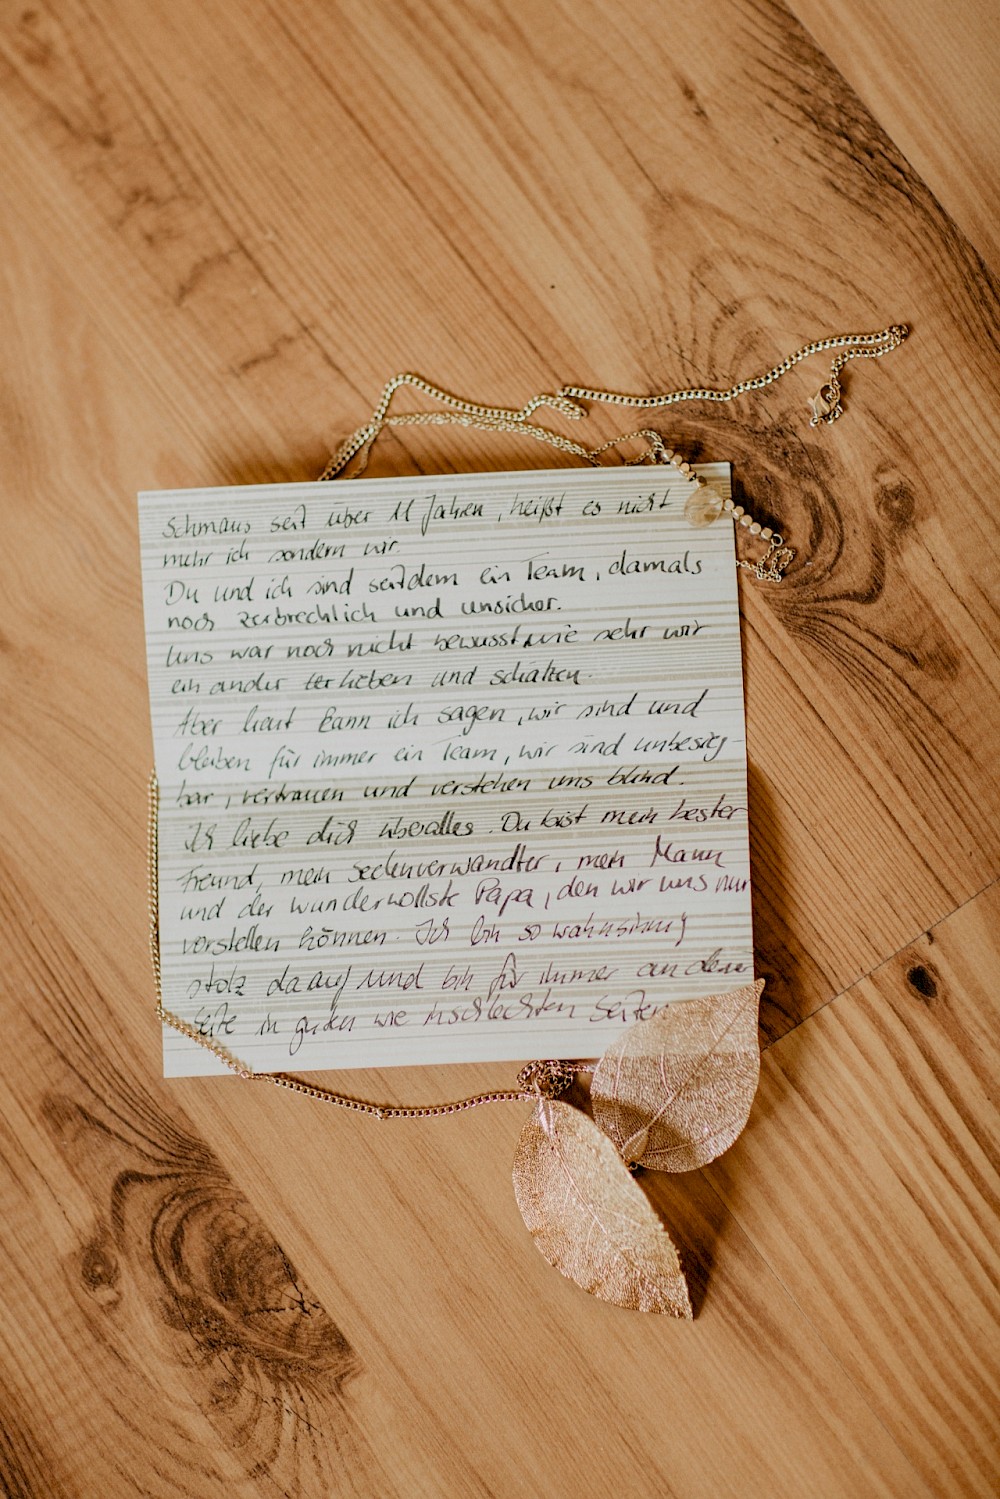 Schmaus seit über 11 Jahren, heißt es nicht
mehr ich sondern wir.
Du und ich sind seitdem ein Team, damals
noch zerbrechlich und unsicher.
Uns war noch nicht bewusst wie sehr wir
einander lieben und schätzen.
Aber heut kann ich sagen, wir sind und
bleiben für immer ein Team, wir sind unbesieg-
bar, vertrauen und verstehen uns blind.
Ich liebe dich überalles. Du bist mein bester
Freund, mein Seelenverwandter, mein Mann
und der wundervollste Papa, den wir uns nur
vorstellen können. Ich bin so wahnsinnig
stolz darauf und bin für immer an deiner
Seite in guten wie in schlechten Seiten